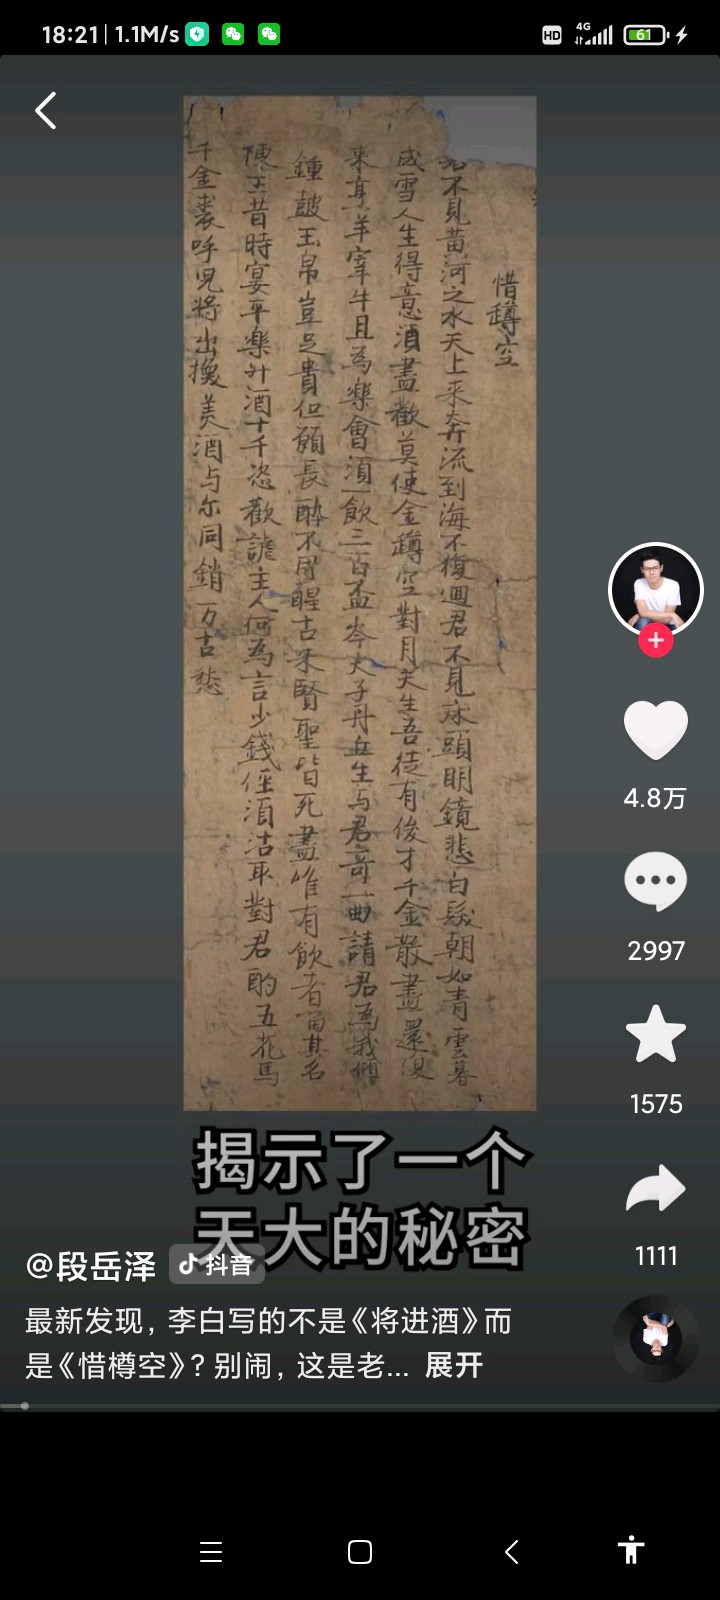 18:21 | 1.1M/s HD 4G 61
惜罇空
君不見黃河之水天上來奔流到海不復迴君不見床頭明鏡悲白髮朝如青雲暮
成雪人生得意須盡歡莫使金罇空對月天生吾徒有俊才千金散盡還復
來烹羊宰牛且為樂會須一飲三百盃岑夫子丹丘生与君哥一曲請君為我傾
鍾鼓玉帛豈足貴但願長醉不用醒古來賢聖皆死盡唯有飲者留其名
陳王昔時宴平樂斗酒十千恣歡謔主人何為言少錢徑須沽取對君酌五花馬
千金裘呼兒將出換美酒与尔同銷万古愁
揭示了一个
天大的秘密
4.8万
2997
1575
1111
@段岳泽 抖音
最新发现，李白写的不是《将进酒》而
是《惜樽空》？别闹，这是老... 展开